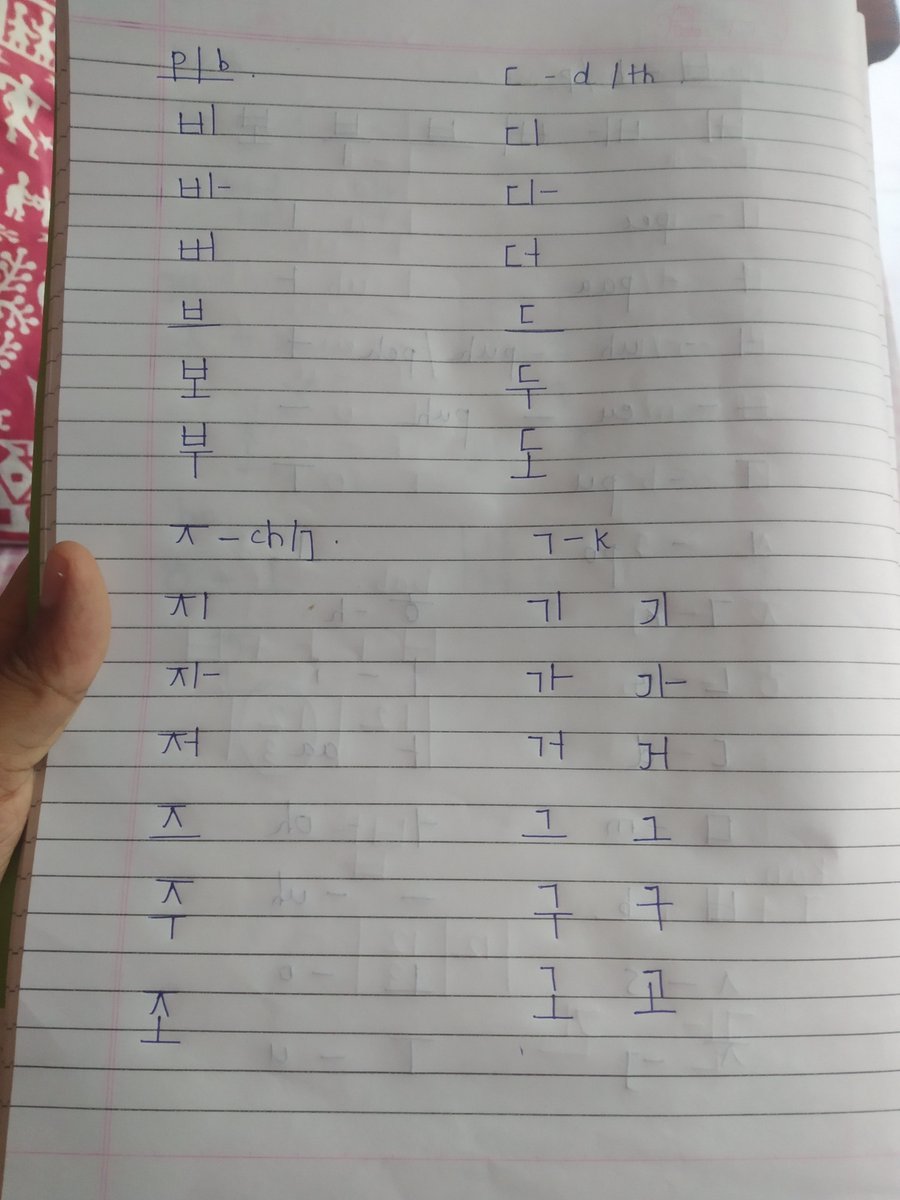 p/b. ㄷ - d /th
비 디
바 다
버 더
브 드
보 두
부 도
ㅈ - ch/j. ㄱ - k
지 기 기
자 가 가
저 거 거
즈 그 그
주 구 구
조 고 고